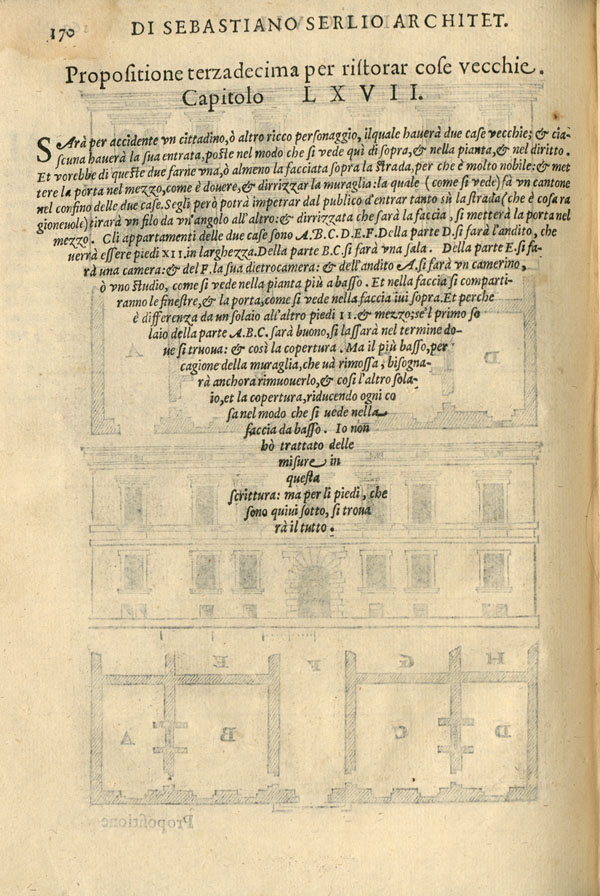 170 DI SEBASTIANO SERLIO ARCHITET.
Propositione terzadecima per ristorar cose vecchie.
Capitolo LXVII.
SArà per accidente vn cittadino, ò altro ricco personaggio, ilquale hauerà due case vecchie; & cia-
scuna hauerà la sua entrata, poste nel modo che si vede quì di sopra, & nella pianta, & nel diritto.
Et vorebbe di queste due farne vna, ò almeno la facciata sopra la strada, per che è molto nobile: & met
tere la porta nel mezzo, come è douere, & dirrizzar la muraglia: la quale (come si vede) fà vn cantone
nel confino delle due case. Segli però potrà impetrar dal publico d'entrar tanto sù la strada (che è cosa ra
gioneuole) tirarà vn filo da vn'angolo all'altro: & dirrizzata che sarà la faccia, si metterà la porta nel
mezzo. Gli appartamenti delle due case sono A.B.C.D.E.F. Della parte D. si farà l'andito, che
uerrà essere piedi XII. in larghezza. Della parte B.C. si farà vna sala. Della parte E. si fa-
rà una camera: & del F. la sua dietrocamera: & dell'andito A. si farà vn camerino,
ò vno studio, come si vede nella pianta più a basso. Et nella faccia si comparti-
ranno le finestre, & la porta, come si vede nella faccia iui sopra. Et perche
è differenza da un solaio all'altro piedi II. & mezzo; se'l primo so
laio della parte A.B.C. sarà buono, si lassarà nel termine do-
ue si truoua: & così la copertura. Ma il più basso, per
cagione della muraglia, che uà rimossa, bisogna-
rà anchora rimuouerlo, & così l'altro sola-
io, et la copertura, riducendo ogni co
sa nel modo che si uede nella
faccia da basso. Io non
hò trattato delle
misure in
questa
scrittura: ma per li piedi, che
sono quiui sotto, si troua
rà il tutto.
E F G H
A B C D
Propositione